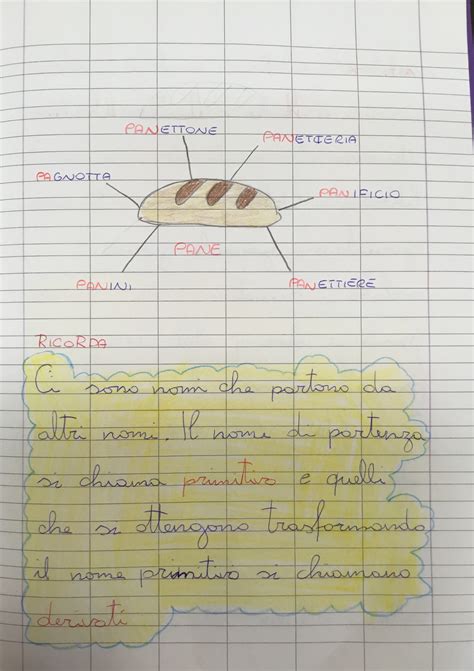 PANETTONE
PANETTIERIA
PAGNOTTA
PANIFICIO
PANE
PANINI
PANETTIERE
RICORDA
Ci sono nomi che partono da
altri nomi. Il nome di partenza
si chiama primitivo e quelli
che si ottengono trasformando
il nome primitivo si chiamano
derivati